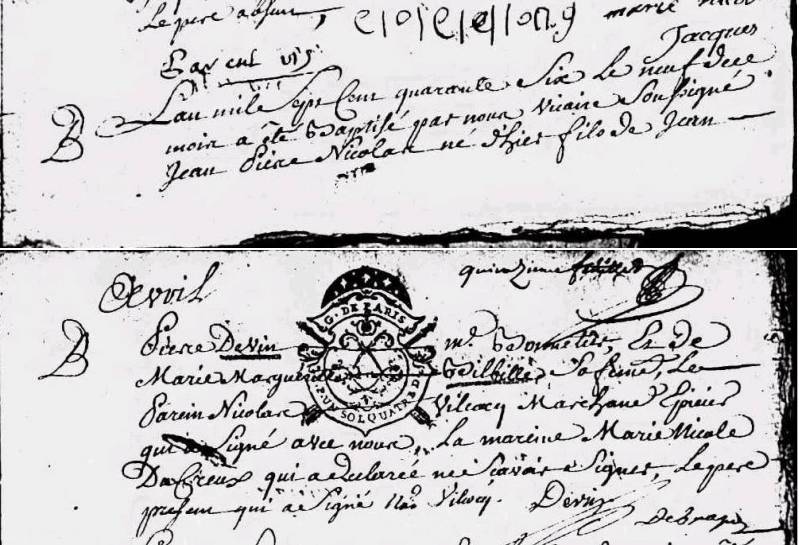 Le pere absent,
Jacques
L'an mile sept cent quarante six le neuf du
B
mois a été Baptisé par nous vicaire soussigné
Jean Piere Nicolas né d'hier fils de Jean
Avril
quinzieme feuillet
G. DE PARIS
B
Piere Devin md Bonnetier, Et de
Marie Marguerite Vilbille sa feme, Le
Parein Nicolas Vilcocq Marchand Epicier
qui a Signé avec nous, La mareine Marie Nicole
Ducreux qui a declareé ne scavoir Signer, Le pere
present qui a Signé Nas Vilcocq. Devin